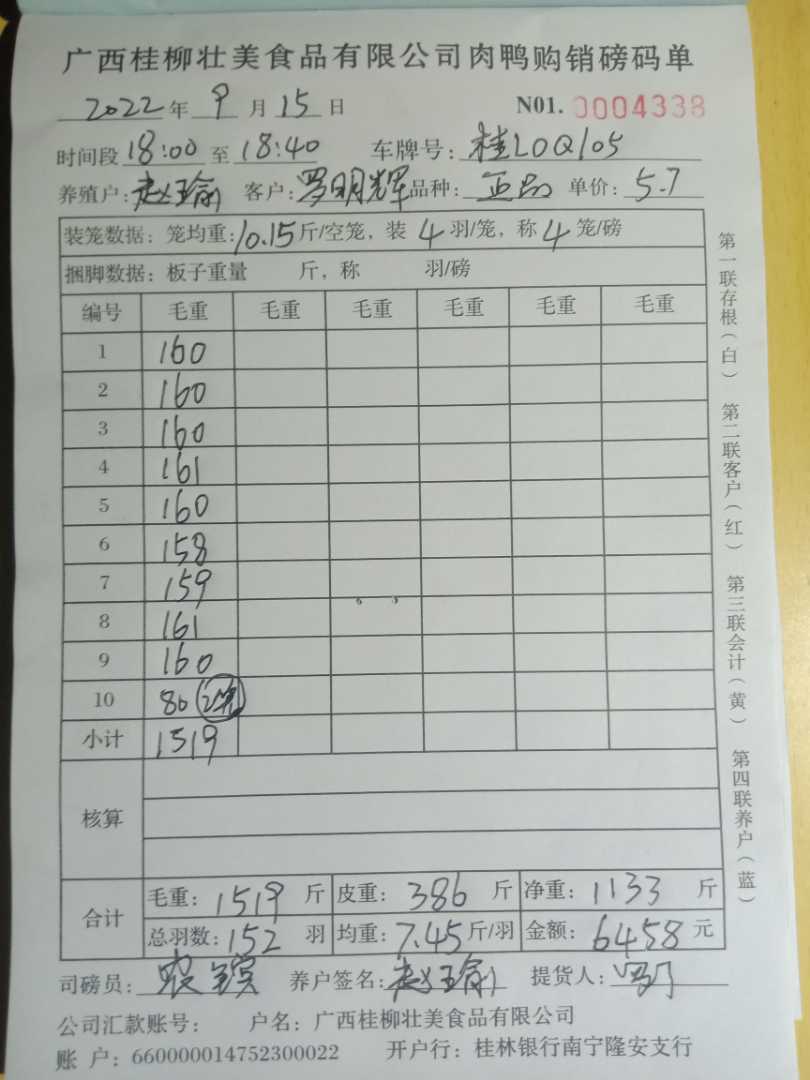 广西桂柳壮美食品有限公司肉鸭购销磅码单
2022年9月15日 N01. 0004338
时间段18:00至18:40 车牌号：桂L0Q105
养殖户：赵玉瑜 客户：罗明辉 品种：正品 单价：5.7
装笼数据：笼均重：10.15斤/空笼，装4羽/笼，称4笼/磅
捆脚数据：板子重量 斤，称 羽/磅
编号 毛重 毛重 毛重 毛重 毛重 毛重
1 160
2 160
3 160
4 161
5 160
6 158
7 159
8 161
9 160
10 80 2笼
小计 1519
核算
合计 毛重：1519斤 皮重：386斤 净重：1133斤
总羽数：152羽 均重：7.45斤/羽 金额：6458元
司磅员： 养户签名：赵玉瑜 提货人：
公司汇款账号： 户名：广西桂柳壮美食品有限公司
账 户：660000014752300022 开户行：桂林银行南宁隆安支行
第一联存根（白） 第二联客户（红） 第三联会计（黄） 第四联养户（蓝）